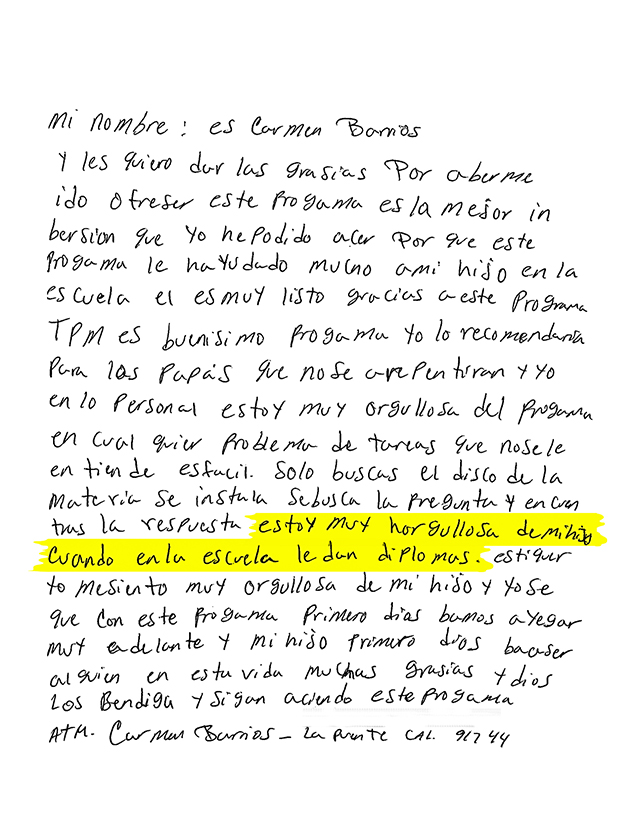 mi nombre: es Carmen Barrios
Y les quiero dar las grasias Por aberme
ido ofreser este Progama es la mejor in
bersion que Yo he Podido acer Por que este
Progama le hayudado mucho ami hijo en la
escuela el es muy listo gracias a este Programa
TPM es buenisimo Progama Yo lo recomendaria
Para los Papás que no se arepentiran y yo
en lo Personal estoy muy orgullosa del Progama
en cual quier Problema de tareas que nosele
en tiende es facil. Solo buscas el disco de la
materia se instala se busca la Pregunta y encuen
tras la respuesta estoy muy horgullosa de mi hijo
Cuando en la escuela le dan diplomas. estiquer
Yo me siento muy orgullosa de mi hijo y Yo se
que con este Progama Primero dios bamos a yegar
muy adelante y mi hijo Primero dios ba aser
alguien en esta vida muchas grasias y dios
los Bendiga y Sigan aciendo este Progama
ATM. Carmen Barrios - La Puente CAL. 91744